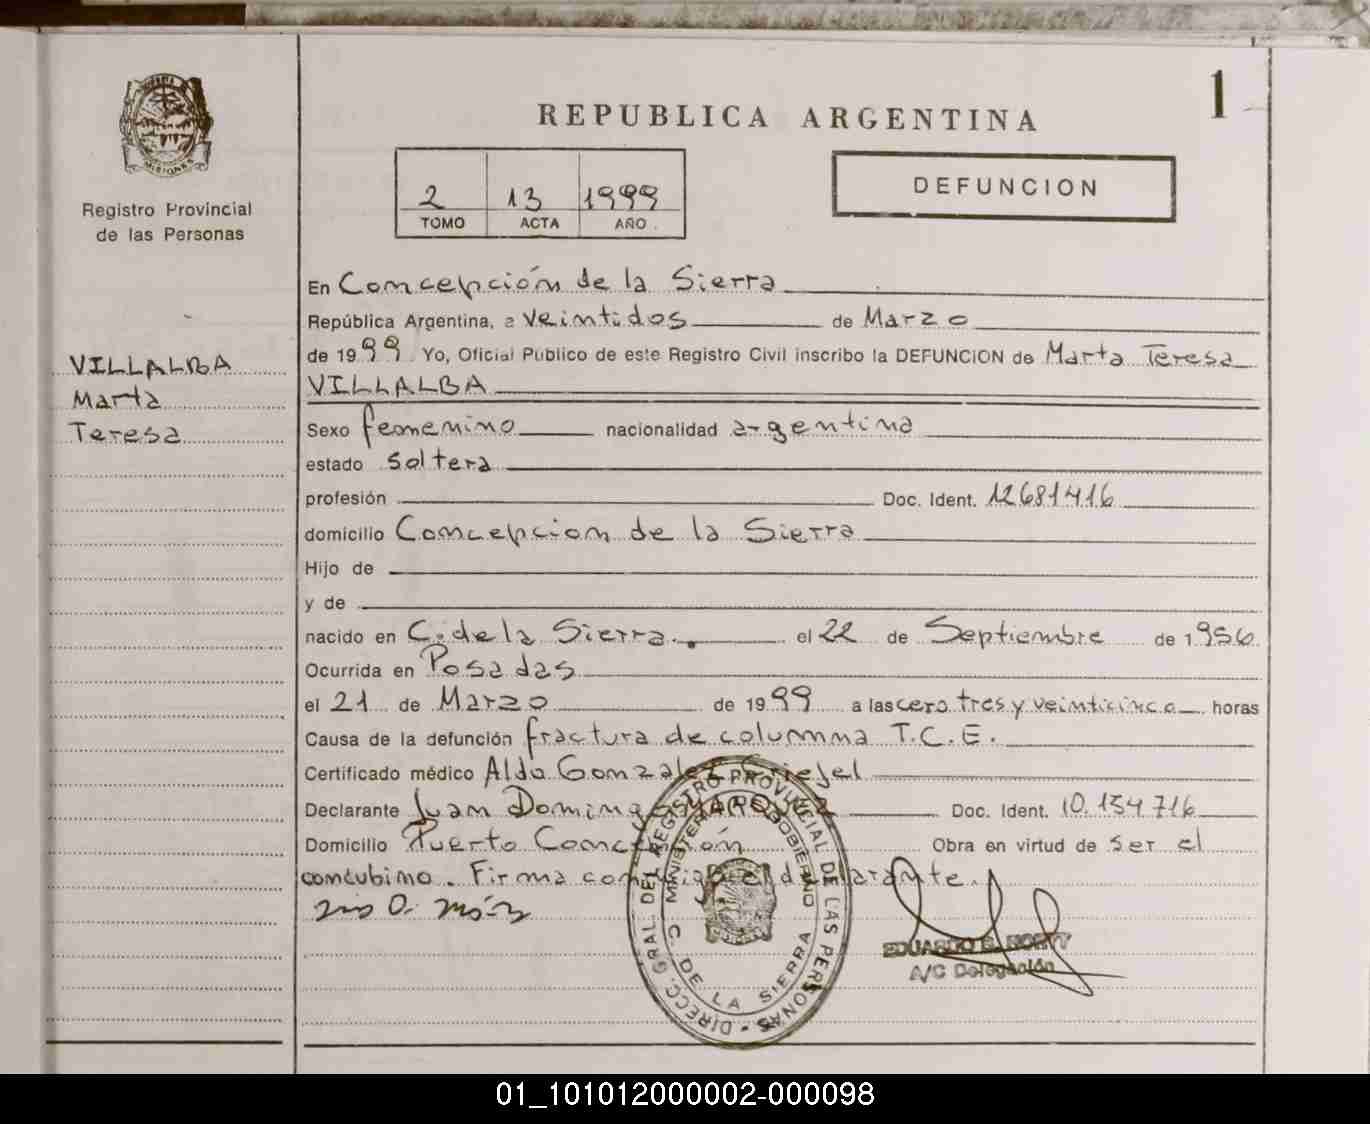 1
REPUBLICA ARGENTINA
MISIONES
Registro Provincial
de las Personas
2 13 1999
TOMO ACTA AÑO
DEFUNCION
VILLALBA
Marta
Teresa
En Concepción de la Sierra
República Argentina, a veintidos de Marzo
de 1999 Yo, Oficial Público de este Registro Civil inscribo la DEFUNCION de Marta Teresa
VILLALBA
Sexo femenino nacionalidad argentina
estado soltera
profesión Doc. Ident. 12681416
domicilio Concepcion de la Sierra
Hijo de
y de
nacido en C. de la Sierra. el 22 de Septiembre de 1956
Ocurrida en Posadas
el 21 de Marzo de 1999 a las cero tres y veinticinco horas
Causa de la defunción fractura de columna T.C.E.
Certificado médico Aldo Gonzalez
Declarante Juan Domingo Doc. Ident. 10.154.716
Domicilio Puerto Concepción Obra en virtud de ser el
concubino. Firma conmigo el declarante.
DIRECC. GRAL. DEL REGISTRO PROVINCIAL DE LAS PERSONAS
MINISTERIO DE GOBIERNO
C. DE LA SIERRA
EDUARDO
A/C Delegación
01_101012000002-000098